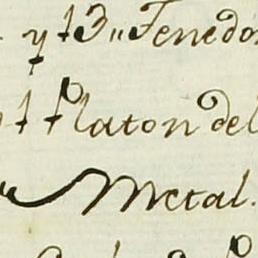 y t3,, Tenedo
t Platon del
Metal.